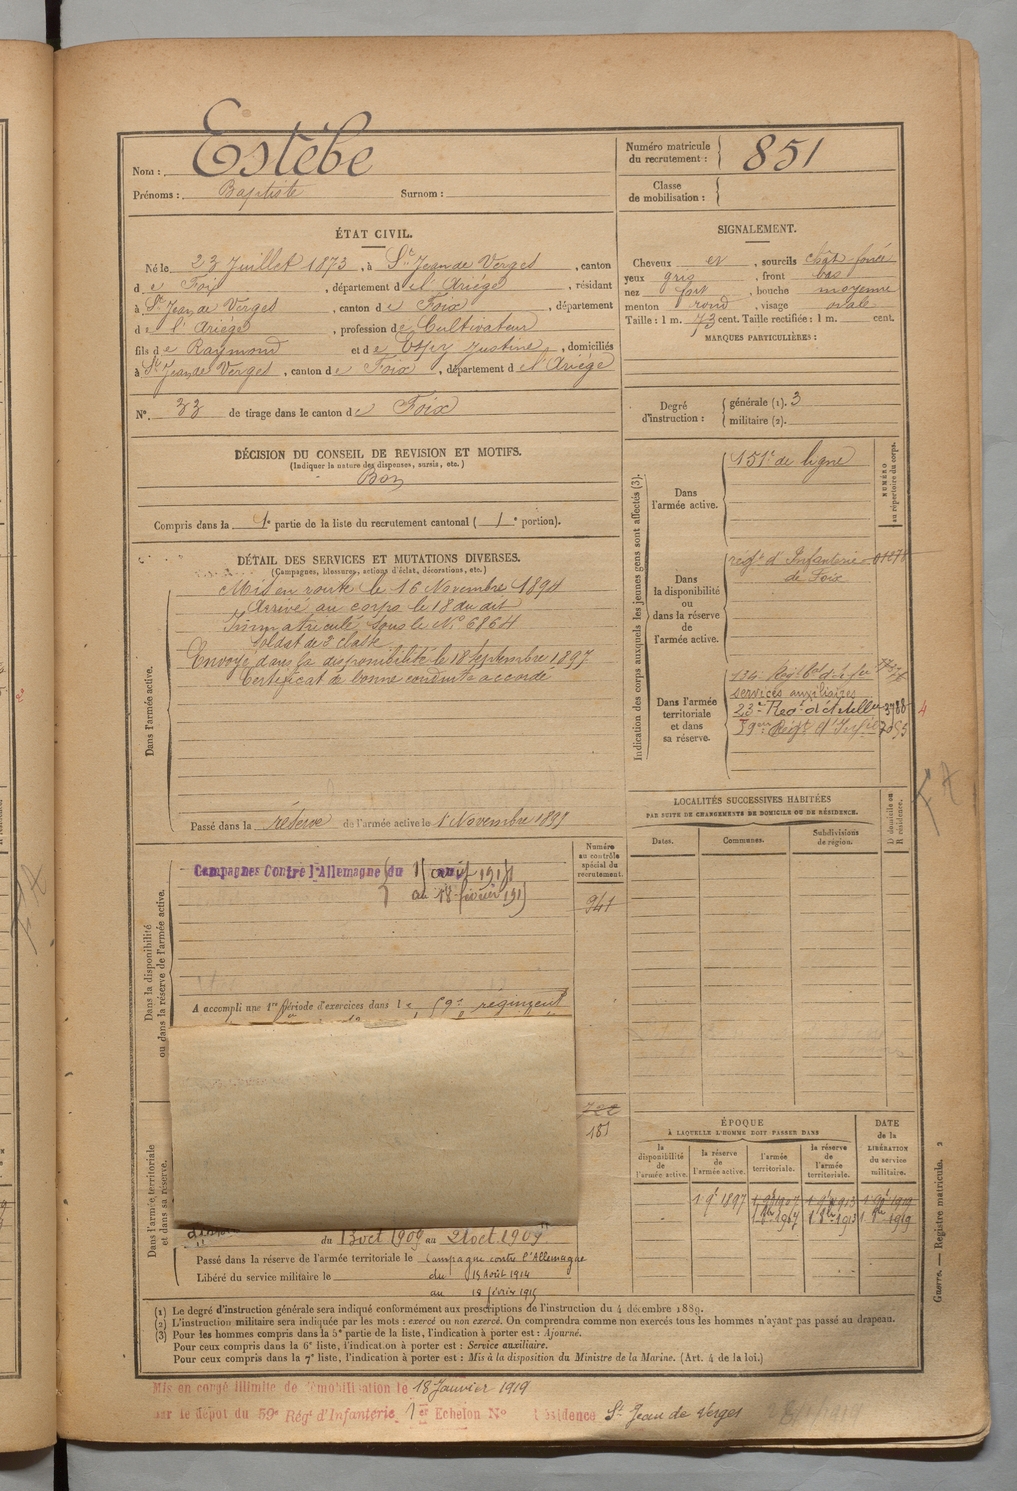 Nom : Estèbe
Prénoms : Baptiste Surnom :
Numéro matricule du recrutement : 851
Classe de mobilisation :
ÉTAT CIVIL.
Né le 23 Juillet 1873, à St Jean de Verges, canton
de Foix, département de l'Ariège, résidant
à St Jean de Verges, canton de Foix, département
de l'Ariège, profession de Cultivateur
fils de Raymond et de Justine, domiciliés
à St Jean de Verges, canton de Foix, département de l'Ariège
N° 33 de tirage dans le canton de Foix
SIGNALEMENT.
Cheveux et, sourcils chât foncé
yeux gris, front bas
nez fort, bouche moyenne
menton rond, visage ovale
Taille : 1 m. 73 cent. Taille rectifiée : 1 m. cent.
MARQUES PARTICULIÈRES :
Degré d'instruction : générale (1). 3
militaire (2).
DÉCISION DU CONSEIL DE REVISION ET MOTIFS.
(Indiquer la nature des dispenses, sursis, etc.)
Bon
Compris dans la 1e partie de la liste du recrutement cantonal (1e portion).
DÉTAIL DES SERVICES ET MUTATIONS DIVERSES.
(Campagnes, blessures, actions d'éclat, décorations, etc.)
Dans l'armée active.
Mis en route le 16 Novembre 1894
Arrivé au corps le 18 du dit
Immatriculé sous le N° 6864
Soldat de 2e classe
Envoyé dans la disponibilité le 18 Septembre 1897
Certificat de bonne conduite accordé
Passé dans la réserve de l'armée active le 1 Novembre 189
Indication des corps auxquels les jeunes gens sont affectés (3).
NUMÉRO au répertoire du corps.
Dans l'armée active.
151e de ligne
Dans la disponibilité ou dans la réserve de l'armée active.
régt d'Infanterie 01278
de Foix
Dans l'armée territoriale et dans sa réserve.
134
services auxiliaires
23e Regt d'Artillerie 3788 4
59eme Régt d'Inf
Dans la disponibilité ou dans la réserve de l'armée active.
Numéro au contrôle spécial du recrutement.
Campagnes Contre l'Allemagne du
au 18 février 191
941
A accompli une 1re période d'exercices dans le 59e régiment
181
Dans l'armée territoriale et dans sa réserve.
du 13 oct 1909 au 21 oct. 1909
Passé dans la réserve de l'armée territoriale le Campagne contre l'Allemagne
Libéré du service militaire le du Août 1914
au 18 février 1915
LOCALITÉS SUCCESSIVES HABITÉES
PAR SUITE DE CHANGEMENTS DE DOMICILE OU DE RÉSIDENCE.
Dates. Communes. Subdivisions de région. D domicile ou R résidence.
ÉPOQUE
À LAQUELLE L'HOMME DOIT PASSER DANS
DATE de la LIBÉRATION du service militaire.
la disponibilité de l'armée active. la réserve de l'armée active. l'armée territoriale. la réserve de l'armée territoriale.
1 9e 1897
(1) Le degré d'instruction générale sera indiqué conformément aux prescriptions de l'instruction du 4 décembre 1889.
(2) L'instruction militaire sera indiquée par les mots : exercé ou non exercé. On comprendra comme non exercés tous les hommes n'ayant pas passé au drapeau.
(3) Pour les hommes compris dans la 5e partie de la liste, l'indication à porter est : Ajourné.
Pour ceux compris dans la 6e liste, l'indication à porter est : Service auxiliaire.
Pour ceux compris dans la 7e liste, l'indication à porter est : Mis à la disposition du Ministre de la Marine. (Art. 4 de la loi.)
Guerre. — Registre matricule. 2
Mis en congé illimité de démobilisation le 18 Janvier 1919
par le dépôt du 59e Régt d'Infanterie 1er Echelon N° résidence St Jean de Verges